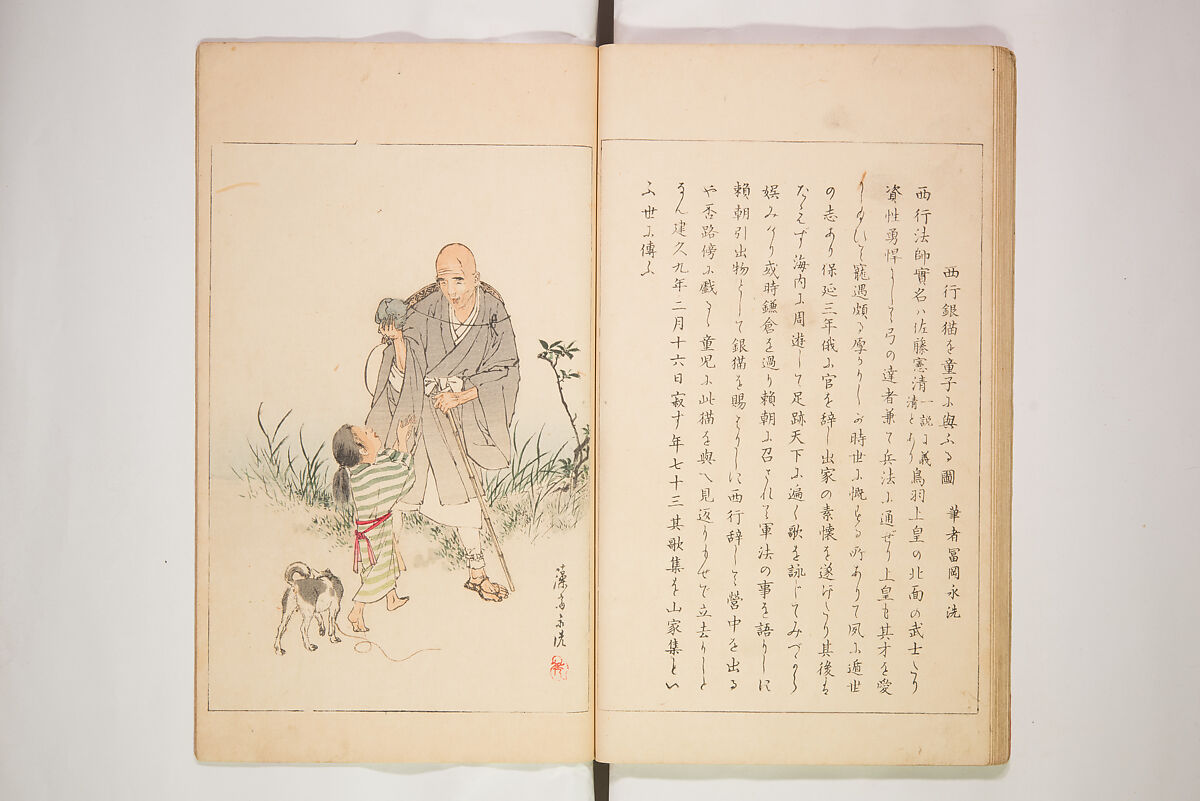 西行銀猫を童子に與ふる圖 筆者冨岡永洗
西行法師實名ハ佐藤憲清一説に義清とあり鳥羽上皇の北面の武士たり
資性勇悍にして弓の達者兼て兵法に通ぜり上皇も其才を愛
し玉ひて寵遇頗る厚かりしが時世に慨する所ありて夙に遁世
の志あり保延三年俄に官を辞し出家の素懐を遂げたり其後は
たえず海内に周遊して足跡天下に遍く歌を詠じてみづから
娯みけり或時鎌倉を過り頼朝に召されて軍法の事を語りしに
頼朝引出物として銀猫を賜はりしに西行辞して営中を出る
や否路傍に戯るゝ童児に此猫を與へ見返りもせで立去りしと
なん建久九年二月十六日寂す年七十三其歌集を山家集とい
ふ世に傳ふ
永洗